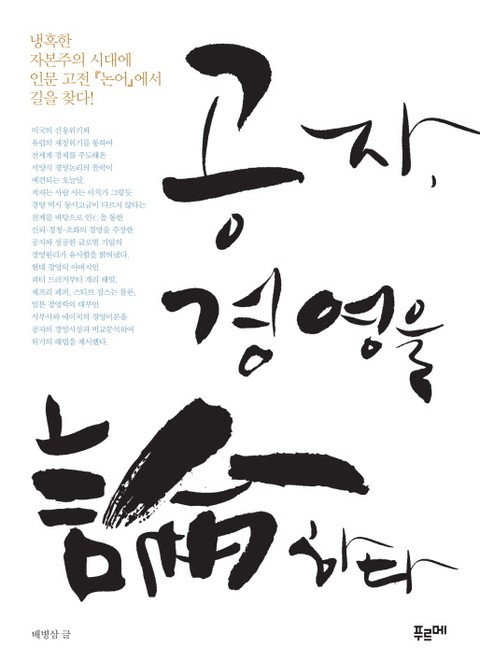 냉혹한
자본주의 시대에
인문 고전 『논어』에서
길을 찾다!
미국의 신용위기와
유럽의 재정위기를 통하여
전세계 경제를 주도해온
서양식 경영논리의 몰락이
예견되는 오늘날,
저자는 사람 사는 이치가 그렇듯
경영 역시 동서고금이 다르지 않다는
전제를 바탕으로 인仁을 통한
신뢰·경청·조화의 경영을 주장한
공자와 성공한 글로벌 기업의
경영원리가 유사함을 밝혀냈다.
현대 경영의 아버지인
피터 드러커부터 개리 해멀,
제프리 페퍼, 스티브 잡스는 물론,
일본 경영학의 대부인
시부사와 에이치의 경영이론을
공자의 경영사상과 비교분석하여
위기의 해법을 제시했다.
공자,
경영을
論하다
배병삼 글
푸르메